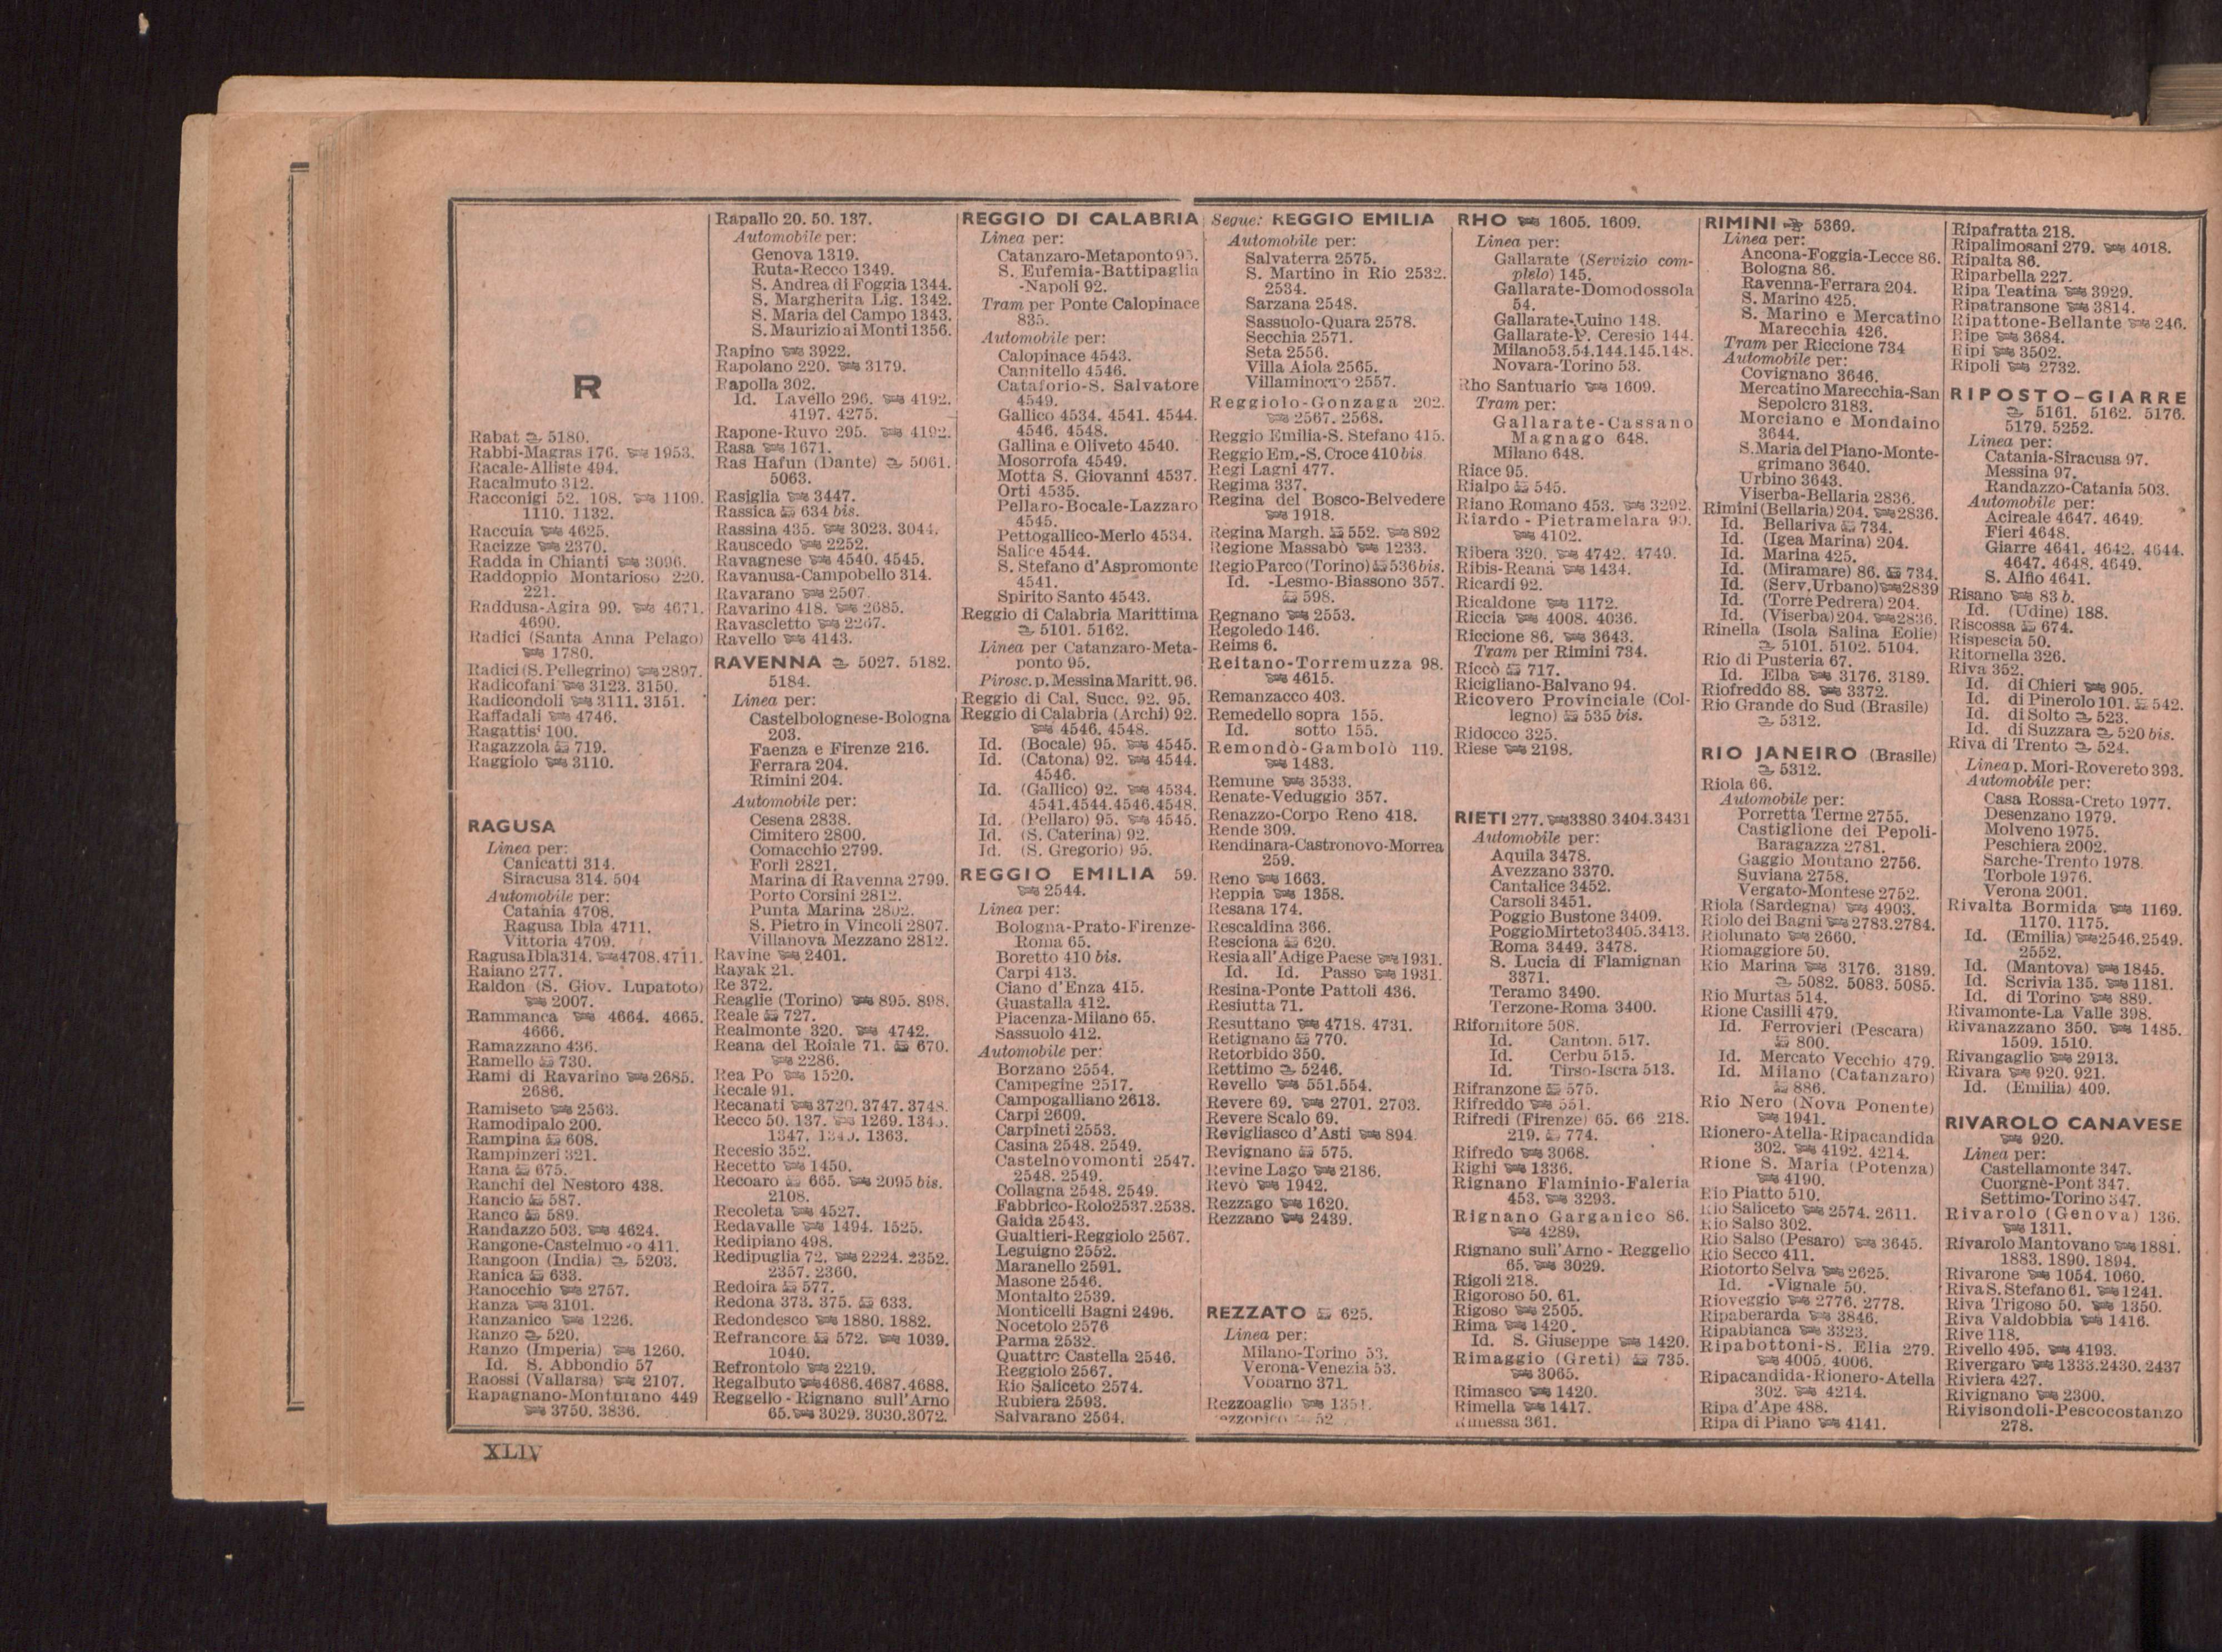 R
Rabat 5180.
Rabbi-Magras 176. 1953.
Racale-Alliste 494.
Racalmuto 312.
Racconigi 52. 108. 1109.
1110. 1132.
Raccuia 4625.
Racizze 2370.
Radda in Chianti 3096.
Raddoppio Montarioso 220.
221.
Raddusa-Agira 99. 4671.
4690.
Radici (Santa Anna Pelago)
1780.
Radici (S. Pellegrino) 2897.
Radicofani 3123. 3150.
Radicondoli 3111. 3151.
Raffadali 4746.
Ragattisi 100.
Ragazzola 719.
Raggiolo 3110.
RAGUSA
Linea per:
Canicatti 314.
Siracusa 314. 504
Automobile per:
Catania 4708.
Ragusa Ibla 4711.
Vittoria 4709.
Ragusa Ibla 314. 4708.4711.
Raiano 277.
Raldon (S. Giov. Lupatoto)
2007.
Rammanca 4664. 4665.
4666.
Ramazzano 436.
Ramello 730.
Rami di Ravarino 2685.
2686.
Ramiseto 2563.
Ramodipalo 200.
Rampina 608.
Rampinzeri 321.
Rana 675.
Ranchi del Nestoro 438.
Rancio 587.
Ranco 589.
Randazzo 503. 4624.
Rangone-Castelnuo o 411.
Rangoon (India) 5203.
Ranica 633.
Ranocchio 2757.
Ranza 3101.
Ranzanico 1226.
Ranzo 520.
Ranzo (Imperia) 1260.
Id. S. Abbondio 57
Raossi (Vallarsa) 2107.
Rapagnano-Montegiano 449
3750. 3836.
Rapallo 20. 50. 137.
Automobile per:
Genova 1319.
Ruta-Recco 1349.
S. Andrea di Foggia 1344.
S. Margherita Lig. 1342.
S. Maria del Campo 1343.
S. Maurizio ai Monti 1356.
Rapino 3922.
Rapolano 220. 3179.
Rapolla 302.
Id. Lavello 296. 4192.
4197. 4275.
Rapone-Ruvo 295. 4192.
Rasa 1671.
Ras Hafun (Dante) 5061.
5063.
Rasiglia 3447.
Rassica 634 bis.
Rassina 435. 3023. 3044.
Rauscedo 2252.
Ravagnese 4540. 4545.
Ravanusa-Campobello 314.
Ravarano 2507.
Ravarino 418. 2685.
Ravascletto 2267.
Ravello 4143.
RAVENNA 5027. 5182.
5184.
Linea per:
Castelbolognese-Bologna
203.
Faenza e Firenze 216.
Ferrara 204.
Rimini 204.
Automobile per:
Cesena 2838.
Cimitero 2800.
Comacchio 2799.
Forlì 2821.
Marina di Ravenna 2799.
Porto Corsini 2812.
Punta Marina 2802.
S. Pietro in Vincoli 2807.
Villanova Mezzano 2812.
Ravine 2401.
Rayak 21.
Re 372.
Reaglie (Torino) 895. 898.
Reale 727.
Realmonte 320. 4742.
Reana del Roiale 71. 670.
2286.
Rea Po 1520.
Recale 91.
Recanati 3720. 3747. 3748.
Recco 50. 137. 1269.
1347. 1363.
Recesio 352.
Recetto 1450.
Recoaro 665. 2095 bis.
2108.
Recoleta 4527.
Redavalle 1494. 1525.
Redipiano 498.
Redipuglia 72. 2224. 2352.
2357. 2360.
Redoira 577.
Redona 373. 375. 633.
Redondesco 1880. 1882.
Refrancore 572. 1039.
1040.
Refrontolo 2219.
Regalbuto 4686.4687.4688.
Reggello - Rignano sull'Arno
65. 3029. 3030.3072.
REGGIO DI CALABRIA
Linea per:
Catanzaro-Metaponto 95.
S. Eufemia-Battipaglia
-Napoli 92.
Tram per Ponte Calopinace
835.
Automobile per:
Calopinace 4543.
Cannitello 4546.
Cataforio-S. Salvatore
4549.
Gallico 4534. 4541. 4544.
4546. 4548.
Gallina e Oliveto 4540.
Mosorrofa 4549.
Motta S. Giovanni 4537.
Orti 4535.
Pellaro-Bocale-Lazzaro
4545.
Pettogallico-Merlo 4534.
Salice 4544.
S. Stefano d'Aspromonte
4541.
Spirito Santo 4543.
Reggio di Calabria Marittima
5101. 5162.
Linea per Catanzaro-Meta-
ponto 95.
Pirosc. p. Messina Maritt. 96.
Reggio di Cal. Succ. 92. 95.
Reggio di Calabria (Archi) 92.
4546. 4548.
Id. (Bocale) 95. 4545.
Id. (Catona) 92. 4544.
4546.
Id. (Gallico) 92. 4534.
4541.4544.4546.4548.
Id. (Pellaro) 95. 4545.
Id. (S. Caterina) 92.
Id. (S. Gregorio) 95.
REGGIO EMILIA 59.
2544.
Linea per:
Bologna-Prato-Firenze-
Roma 65.
Boretto 410 bis.
Carpi 413.
Ciano d'Enza 415.
Guastalla 412.
Piacenza-Milano 65.
Sassuolo 412.
Automobile per:
Borzano 2554.
Campegine 2517.
Campogalliano 2613.
Carpi 2609.
Carpineti 2553.
Casina 2548. 2549.
Castelnovomonti 2547.
2548. 2549.
Collagna 2548. 2549.
Fabbrico-Rolo 2537.2538.
Gaida 2543.
Gualtieri-Reggiolo 2567.
Leguigno 2552.
Maranello 2591.
Masone 2546.
Montalto 2539.
Monticelli Bagni 2496.
Nocetolo 2576
Parma 2532.
Quattro Castella 2546.
Reggiolo 2567.
Rio Saliceto 2574.
Rubiera 2593.
Salvarano 2564.
Segue: REGGIO EMILIA
Automobile per:
Salvaterra 2575.
S. Martino in Rio 2532.
2534.
Sarzana 2548.
Sassuolo-Quara 2578.
Secchia 2571.
Seta 2556.
Villa Aiola 2565.
Villaminozzo 2557.
Reggiolo-Gonzaga 202.
2567. 2568.
Reggio Emilia-S. Stefano 415.
Reggio Em.-S. Croce 410 bis.
Regi Lagni 477.
Regima 337.
Regina del Bosco-Belvedere
1918.
Regina Margh. 552. 892
Regione Massabò 1233.
Regio Parco (Torino) 536 bis.
Id. -Lesmo-Biassono 357.
598.
Regnano 2553.
Regoledo 146.
Reims 6.
Reitano-Torremuzza 98.
4615.
Remanzacco 403.
Remedello sopra 155.
Id. sotto 155.
Remondò-Gambolò 119.
1483.
Remune 3533.
Renate-Veduggio 357.
Renazzo-Corpo Reno 418.
Rende 309.
Rendinara-Castronovo-Morrea
259.
Reno 1663.
Reppia 1358.
Resana 174.
Rescaldina 366.
Resciona 620.
Resia all'Adige Paese 1931.
Id. Id. Passo 1931.
Resina-Ponte Pattoli 436.
Resiutta 71.
Resuttano 4718. 4731.
Retignano 770.
Retorbido 350.
Rettimo 5246.
Revello 551.554.
Revere 69. 2701. 2703.
Revere Scalo 69.
Revigliasco d'Asti 894.
Revignano 575.
Revine Lago 2186.
Revò 1942.
Rezzago 1620.
Rezzano 2439.
REZZATO 625.
Linea per:
Milano-Torino 53.
Verona-Venezia 53.
Vobarno 371.
Rezzoaglio 1351.
ezzonico 52
RHO 1605. 1609.
Linea per:
Gallarate (Servizio com-
pleto) 145.
Gallarate-Domodossola
54.
Gallarate-Luino 148.
Gallarate-P. Ceresio 144.
Milano 53.54.144.145.148.
Novara-Torino 53.
Rho Santuario 1609.
Tram per:
Gallarate-Cassano
Magnago 648.
Milano 648.
Riace 95.
Rialpo 545.
Riano Romano 453. 3292.
Riardo - Pietramelara 90.
4102.
Ribera 320. 4742. 4749.
Ribis-Reana 1434.
Ricardi 92.
Ricaldone 1172.
Riccia 4008. 4036.
Riccione 86. 3643.
Tram per Rimini 734.
Riccò 717.
Ricigliano-Balvano 94.
Ricovero Provinciale (Col-
legno) 535 bis.
Ridocco 325.
Riese 2198.
RIETI 277. 3380.3404.3431
Automobile per:
Aquila 3478.
Avezzano 3370.
Cantalice 3452.
Carsoli 3451.
Poggio Bustone 3409.
Poggio Mirteto 3405.3413.
Roma 3449. 3478.
S. Lucia di Flamignan
3371.
Teramo 3490.
Terzone-Roma 3400.
Rifornitore 508.
Id. Canton. 517.
Id. Cerbu 515.
Id. Tirso-Iscra 513.
Rifranzone 575.
Rifreddo 551.
Rifredi (Firenze) 65. 66 218.
219. 774.
Rifredo 3068.
Righi 1336.
Rignano Flaminio-Faleria
453. 3293.
Rignano Garganico 86.
4289.
Rignano sull'Arno - Reggello
65. 3029.
Rigoli 218.
Rigoroso 50. 61.
Rigoso 2505.
Rima 1420.
Id. S. Giuseppe 1420.
Rimaggio (Greti) 735.
3065.
Rimasco 1420.
Rimella 1417.
Rimessa 361.
RIMINI 5369.
Linea per:
Ancona-Foggia-Lecce 86.
Bologna 86.
Ravenna-Ferrara 204.
S. Marino 425.
S. Marino e Mercatino
Marecchia 426.
Tram per Riccione 734
Automobile per:
Covignano 3646.
Mercatino Marecchia-San
Sepolcro 3183.
Morciano e Mondaino
3644.
S. Maria del Piano-Monte-
grimano 3640.
Urbino 3643.
Viserba-Bellaria 2836.
Rimini (Bellaria) 204. 2836.
Id. Bellariva 734.
Id. (Igea Marina) 204.
Id. Marina 425.
Id. (Miramare) 86. 734.
Id. (Serv. Urbano) 2839
Id. (Torre Pedrera) 204.
Id. (Viserba) 204. 2836.
Rinella (Isola Salina Eolie)
5101. 5102. 5104.
Rio di Pusteria 67.
Id. Elba 3176. 3189.
Riofreddo 88. 3372.
Rio Grande do Sud (Brasile)
5312.
RIO JANEIRO (Brasile)
5312.
Riola 66.
Automobile per:
Porretta Terme 2755.
Castiglione dei Pepoli-
Baragazza 2781.
Gaggio Montano 2756.
Suviana 2758.
Vergato-Montese 2752.
Riola (Sardegna) 4903.
Riolo dei Bagni 2783.2784.
Riolunato 2660.
Riomaggiore 50.
Rio Marina 3176. 3189.
5082. 5083. 5085.
Rio Murtas 514.
Rione Casilli 479.
Id. Ferrovieri (Pescara)
800.
Id. Mercato Vecchio 479.
Id. Milano (Catanzaro)
886.
Rio Nero (Nova Ponente)
1941.
Rionero-Atella-Ripacandida
302. 4192. 4214.
Rione S. Maria (Potenza)
4190.
Rio Piatto 510.
Rio Saliceto 2574. 2611.
Rio Salso 302.
Rio Salso (Pesaro) 3645.
Rio Secco 411.
Riotorto Selva 2625.
Id. -Vignale 50.
Rioveggio 2776. 2778.
Ripaberarda 3846.
Ripabianca 3323.
Ripabottoni-S. Elia 279.
4005. 4006.
Ripacandida-Rionero-Atella
302. 4214.
Ripa d'Ape 488.
Ripa di Piano 4141.
Ripafratta 218.
Ripalimosani 279. 4018.
Ripalta 86.
Riparbella 227.
Ripa Teatina 3929.
Ripatransone 3814.
Ripattone-Bellante 246.
Ripe 3684.
Ripi 3502.
Ripoli 2732.
RIPOSTO-GIARRE
5161. 5162. 5176.
5179. 5252.
Linea per:
Catania-Siracusa 97.
Messina 97.
Randazzo-Catania 503.
Automobile per:
Acireale 4647. 4649.
Fieri 4648.
Giarre 4641. 4642. 4644.
4647. 4648. 4649.
S. Alfio 4641.
Risano 83 b.
Id. (Udine) 188.
Riscossa 674.
Rispescia 50.
Ritornella 326.
Riva 352.
Id. di Chieri 905.
Id. di Pinerolo 101. 542.
Id. di Solto 523.
Id. di Suzzara 520 bis.
Riva di Trento 524.
Linea p. Mori-Rovereto 393.
Automobile per:
Casa Rossa-Creto 1977.
Desenzano 1979.
Molveno 1975.
Peschiera 2002.
Sarche-Trento 1978.
Torbole 1976.
Verona 2001.
Rivalta Bormida 1169.
1170. 1175.
Id. (Emilia) 2546.2549.
2552.
Id. (Mantova) 1845.
Id. Scrivia 135. 1181.
Id. di Torino 889.
Rivamonte-La Valle 398.
Rivanazzano 350. 1485.
1509. 1510.
Rivangaglio 2913.
Rivara 920. 921.
Id. (Emilia) 409.
RIVAROLO CANAVESE
920.
Linea per:
Castellamonte 347.
Cuorgnè-Pont 347.
Settimo-Torino 347.
Rivarolo (Genova) 136.
1311.
Rivarolo Mantovano 1881.
1883. 1890. 1894.
Rivarone 1054. 1060.
Riva S. Stefano 61. 1241.
Riva Trigoso 50. 1350.
Riva Valdobbia 1416.
Rive 118.
Rivello 495. 4193.
Rivergaro 1333.2430.2437
Riviera 427.
Rivignano 2300.
Rivisondoli-Pescocostanzo
278.
XLIV